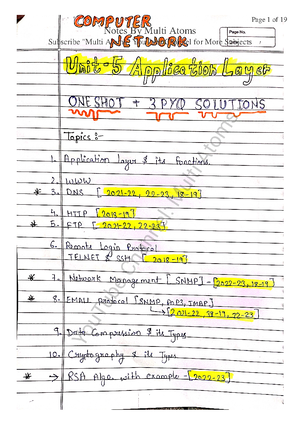 COMPUTER
Page 1 of 19
Notes By Multi Atoms
Page No.
Subscribe "Multi A for More Subjects
NETWORK
Unit-5 Application Layer
ONE SHOT + 3 PYQ SOLUTIONS
Topics :-
1. Application layer & its functions.
2. WWW
* 3. DNS [2021-22, 22-23, 18-19]
4. HTTP [2018-19]
* 5. FTP [2021-22, 22-23]
6. Remote Login Protocol
TELNET & SSH [2018-19]
* 7. Network Management [SNMP] - [2022-23, 18-19]
* 8. EMAIL Protocol [SNMP, POP3, IMAP]
→ [2021-22, 18-19, 22-23]
9. Data Compression & its Types
10. Cryptography & its Types
* → RSA Algo. with example - [2022-23]
YouTube Channel: Multi Atoms